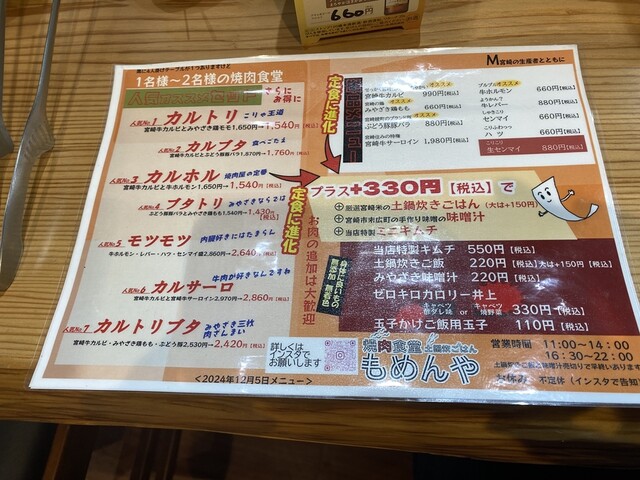 660円
M宮崎の生産者とともに
1名様～2名様の焼肉食堂
さらに
お得に
人気No.1 カルトリ こりゃ王道
宮崎牛カルビとみやざき鶏もも1,650円→1,540円【税込】
人気No.2 カルブタ 食べごたえ
宮崎牛カルビとぶどう豚バラ1,870円→1,760円【税込】
人気No.3 カルホル 焼肉屋の定番
宮崎牛カルビと牛ホルモン1,650円→1,540円【税込】
人気No.4 ブタトリ みやざきならでは
ぶどう豚バラとみやざき鶏もも1,540円→1,430円【税込】
人気No.5 モツモツ 内臓好きにはたまらん
牛ホルモン・レバー・ハツ・センマイ盛2,860円→2,640円【税込】
牛肉が好きなんですね
人気No.6 カルサーロ
宮崎牛カルビと宮崎牛サーロイン2,970円→2,860円【税込】
人気No.7 カルトリブタ みやざき三枚
肉すんまい
宮崎牛カルビ・みやざき鶏もも・ぶどう豚2,530円→2,420円【税込】
＜2024年12月5日メニュー＞
定食に進化
定食に進化
お肉の追加は大歓迎
オススメ
宮崎牛カルビ 990円【税込】
オススメ
みやざき鶏もも 660円【税込】
オススメ
ぶどう豚豚バラ 880円【税込】
宮崎牛サーロイン 1,980円【税込】
プルプル オススメ
牛ホルモン 660円【税込】
ようかんで
牛レバー 880円【税込】
センマイ 660円【税込】
こりふわっっっ
ハツ 660円【税込】
こりこり
生センマイ 880円【税込】
プラス+330円【税込】で
⊕厳選宮崎米の土鍋炊きごはん（大は+150円）
⊕宮崎市末広町の手作り味噌の味噌汁
⊕当店特製ミニキムチ
身体に良いもの
無添加 無着色
当店特製キムチ 550円【税込】
土鍋炊きご飯 220円【税込】大は+150円【税込】
みやざき味噌汁 220円【税込】
ゼロキロカロリー井上
キャベツ キャベツ
酢ダレ味 or 焼野菜 330円【税込】
玉子かけご飯用玉子 110円【税込】
詳しくは
インスタで
お願いします
焼肉食堂 土鍋炊ごはん
もめんや
営業時間 11:00～14:00
16:30～22:00
お休み 不定休（インスタで告知